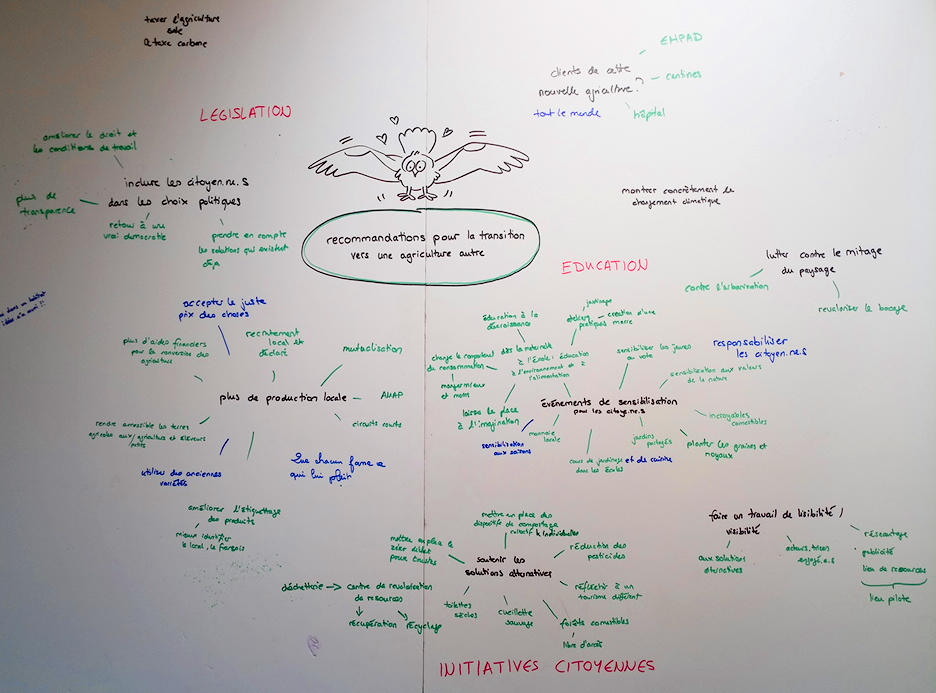 taxer l'agriculture
sale
taxe carbone
EHPAD
clients de cette
nouvelle agriculture?
cantines
tout le monde
hôpital
LÉGISLATION
améliorer le droit et
les conditions de travail
inclure les citoyen.ne.s
dans les choix politiques
plus de
transparence
retour à une
vrai démocratie
prendre en compte
les solutions qui existent
déjà
montrer concrètement le
changement climatique
recommandations pour la transition
vers une agriculture autre
EDUCATION
lutter contre le mitage
du paysage
contre l'urbanisation
revaloriser le bocage
accepter le juste
prix des choses
plus d'aides financiers
pour la conversion des
agriculteurs
recrutement
local et
déclaré
mutualisation
plus de production locale
AMAP
circuits courts
rendre accessible les terres
agricoles aux agriculteurs et éleveurs
petits
utiliser des anciennes
variétés
Que chacun fasse ce
qui lui plait
éducation à la
décroissance
ateliers
pratiques
jardinage
création d'une
mare
change le comportement
de consommation
manger mieux
et moins
dès la maternelle
à l'école : éducation
à l'environnement et à
l'alimentation
laisser la place
à l'imagination
sensibiliser les jeunes
au vote
responsabiliser
les citoyen.ne.s
sensibilisation aux valeurs
de la nature
évènements de sensibilisation
pour les citoye.ne.s
sensibilisation
aux saisons
monnaie
locale
cours de jardinage et de cuisine
dans les écoles
jardins
partagés
incroyables
comestibles
planter les graines et
noyaux
améliorer l'étiquettage
des produits
mieux identifier
le local, le français
mettre en place des
dispositifs de compostage
collectif & individuelles
mettre en place le
zéro déchet
pour toustes
soutenir les
solutions alternatives
réduction des
pesticides
réfléchir à un
tourisme différent
déchetterie → centre de revalorisation
de ressources
récupération
recyclage
toilettes
sèches
cueillette
sauvage
forêts comestibles
libre d'accès
faire un travail de lisibilité /
visibilité
aux solutions
alternatives
acteurs.trices
engagé.e.s
réseautage
publicité
lien de ressources
lieu pilote
INITIATIVES CITOYENNES